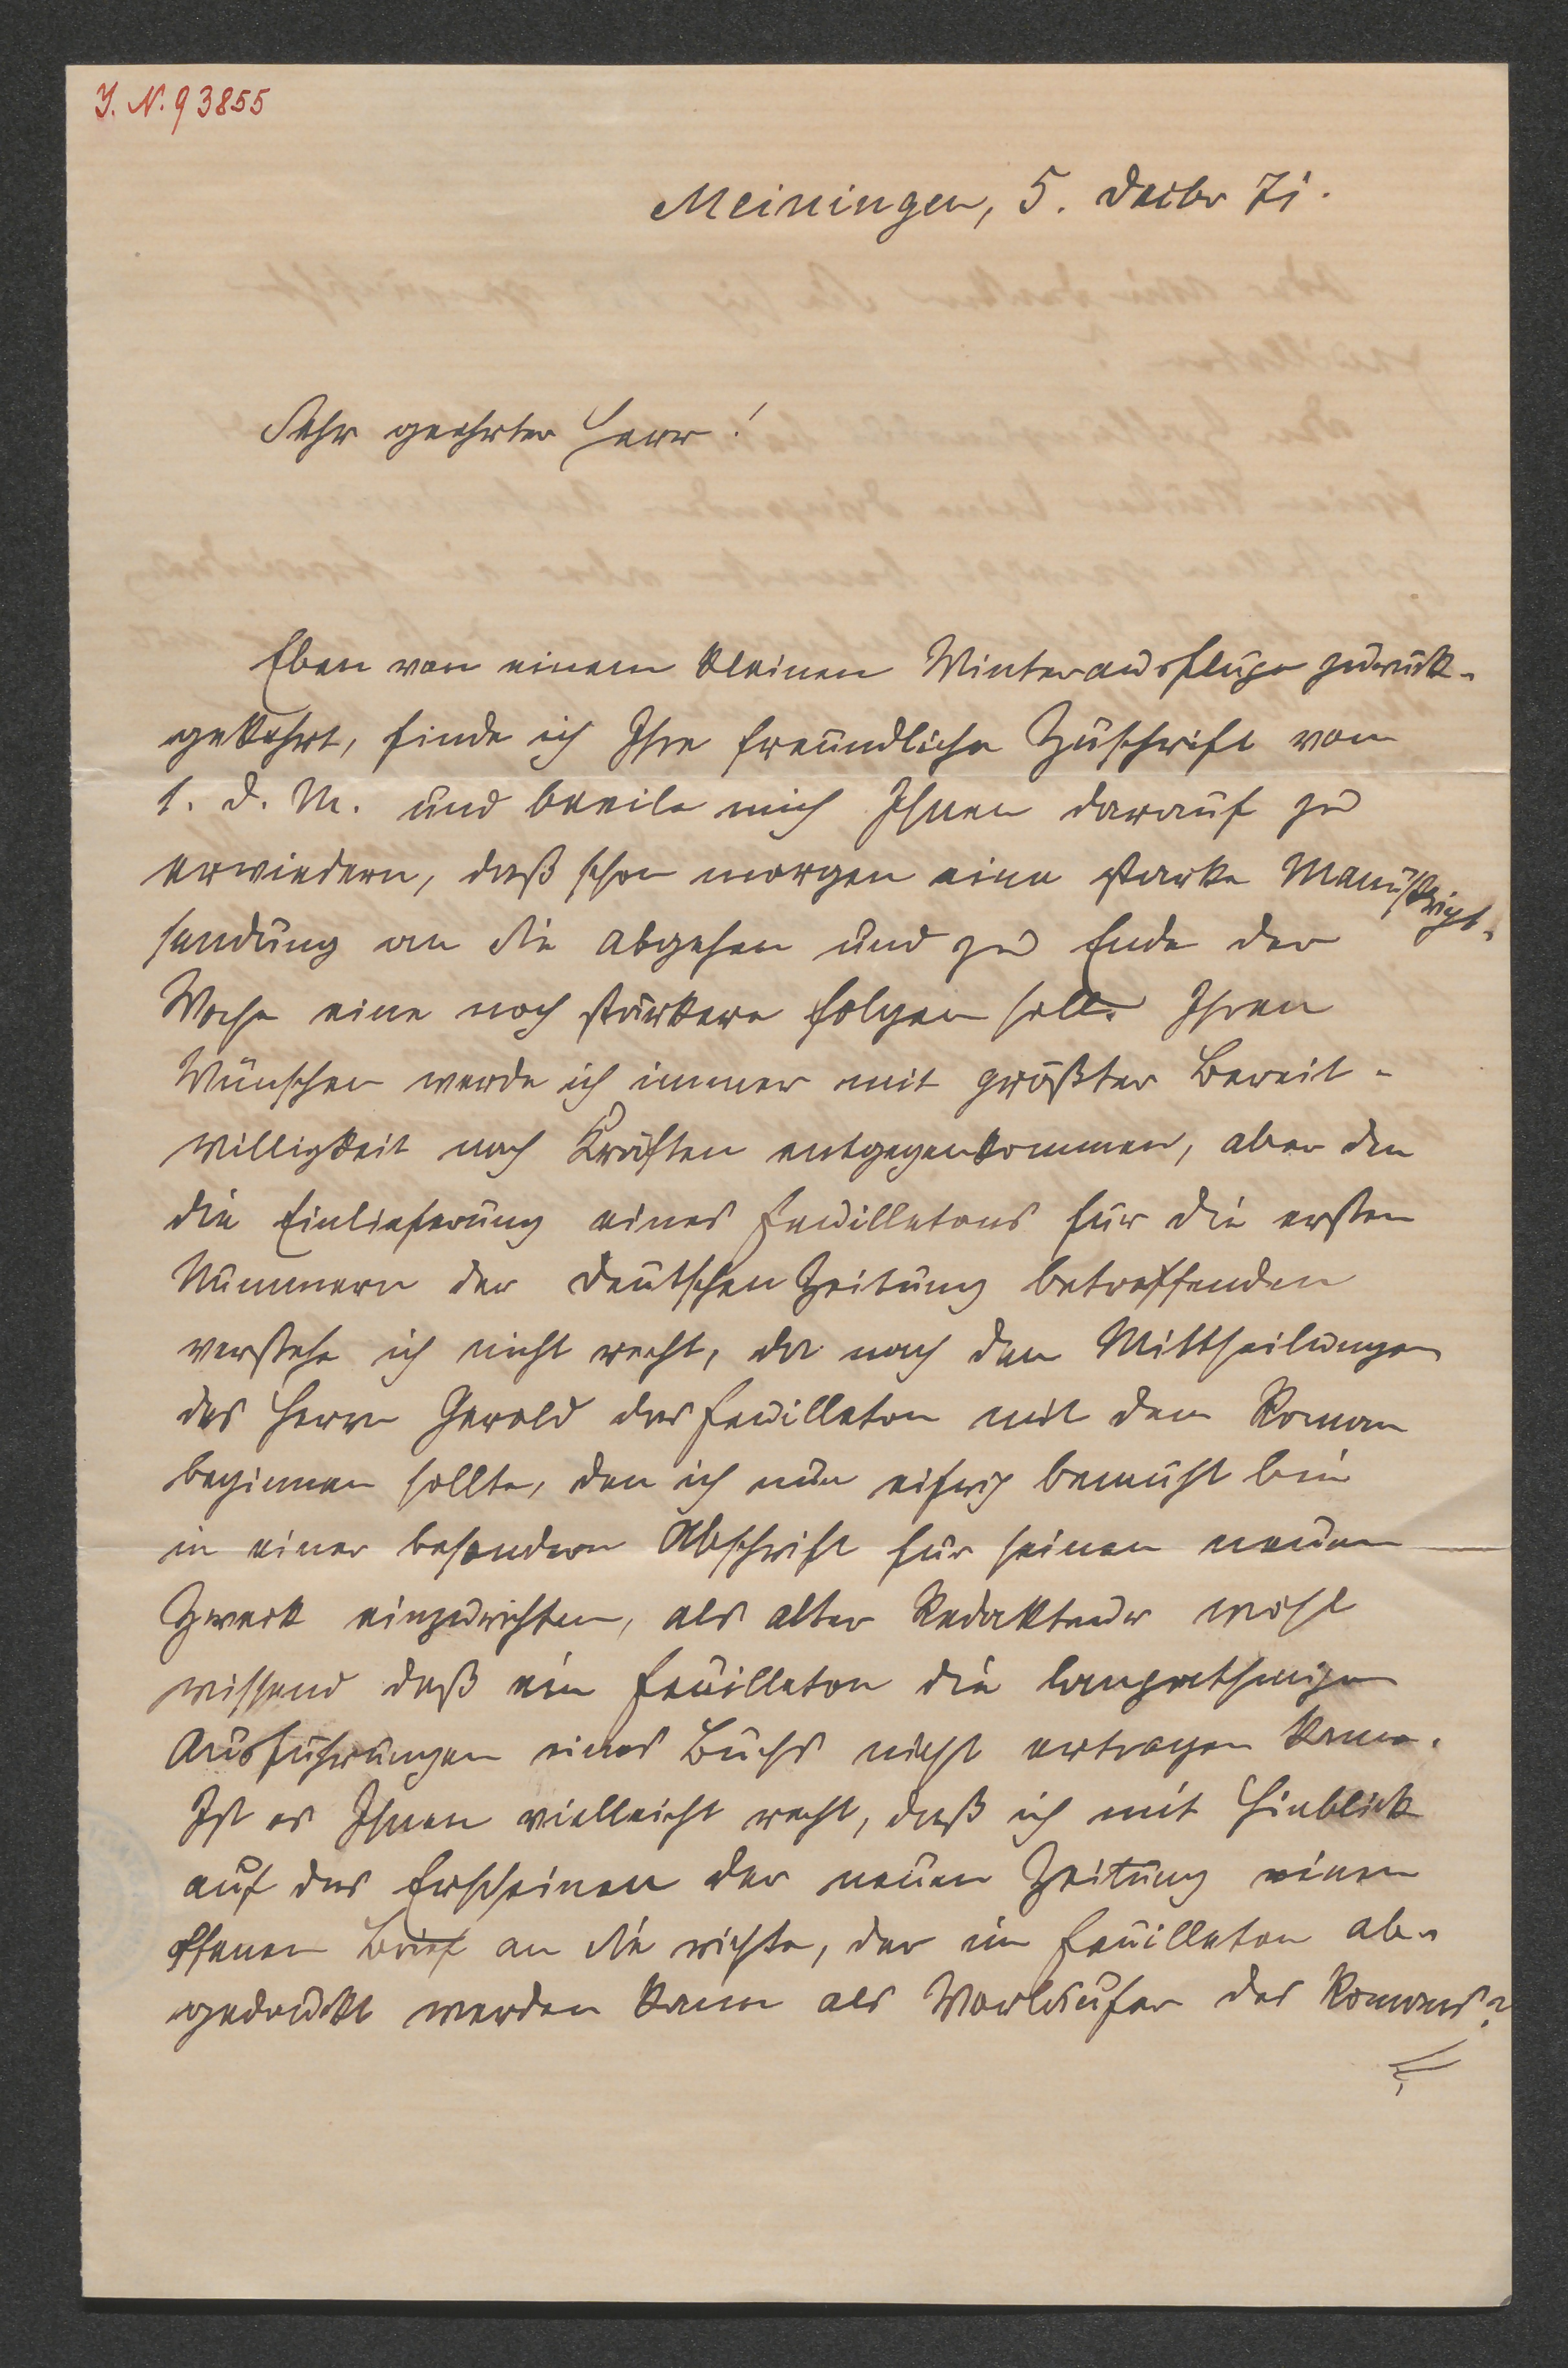 J. N. 93855
Meiningen, 5. Decbr 71.
Sehr geehrter Herr!
Eben von einem kleinen Winterausfluge zurück-
gekehrt, finde ich Ihre freundliche Zuschrift vom
1. d. M. und beeile mich Ihnen darauf zu
erwiedern, daß schon morgen eine starke Manuskript-
sendung an Sie abgehen und zu Ende der
Woche eine noch stärkere folgen soll. Ihren
Wünschen werde ich immer mit größter Bereit-
willigkeit nach Kräften entgegenkommen, aber den
die Einlieferung eines Feuilletons für die ersten
Nummern der Deutschen Zeitung betreffenden
verstehe ich nicht recht, da nach den Mittheilungen
des Herrn Gerold das Feuilleton mit dem Roman
beginnen sollte, den ich nun eifrig bemüht bin
in einer besondern Abschrift für seinen neuen
Zweck einzurichten, als alter Redakteur wohl
wissend daß ein Feuilleton die langathmigen
Ausführungen eines Buchs nicht ertragen kann.
Ist es Ihnen vielleicht recht, daß ich mit Hinblick
auf das Erscheinen der neuen Zeitung einen
offenen Brief an Sie richte, der im Feuilleton ab-
gedruckt werden kann als Vorläufer des Romans?